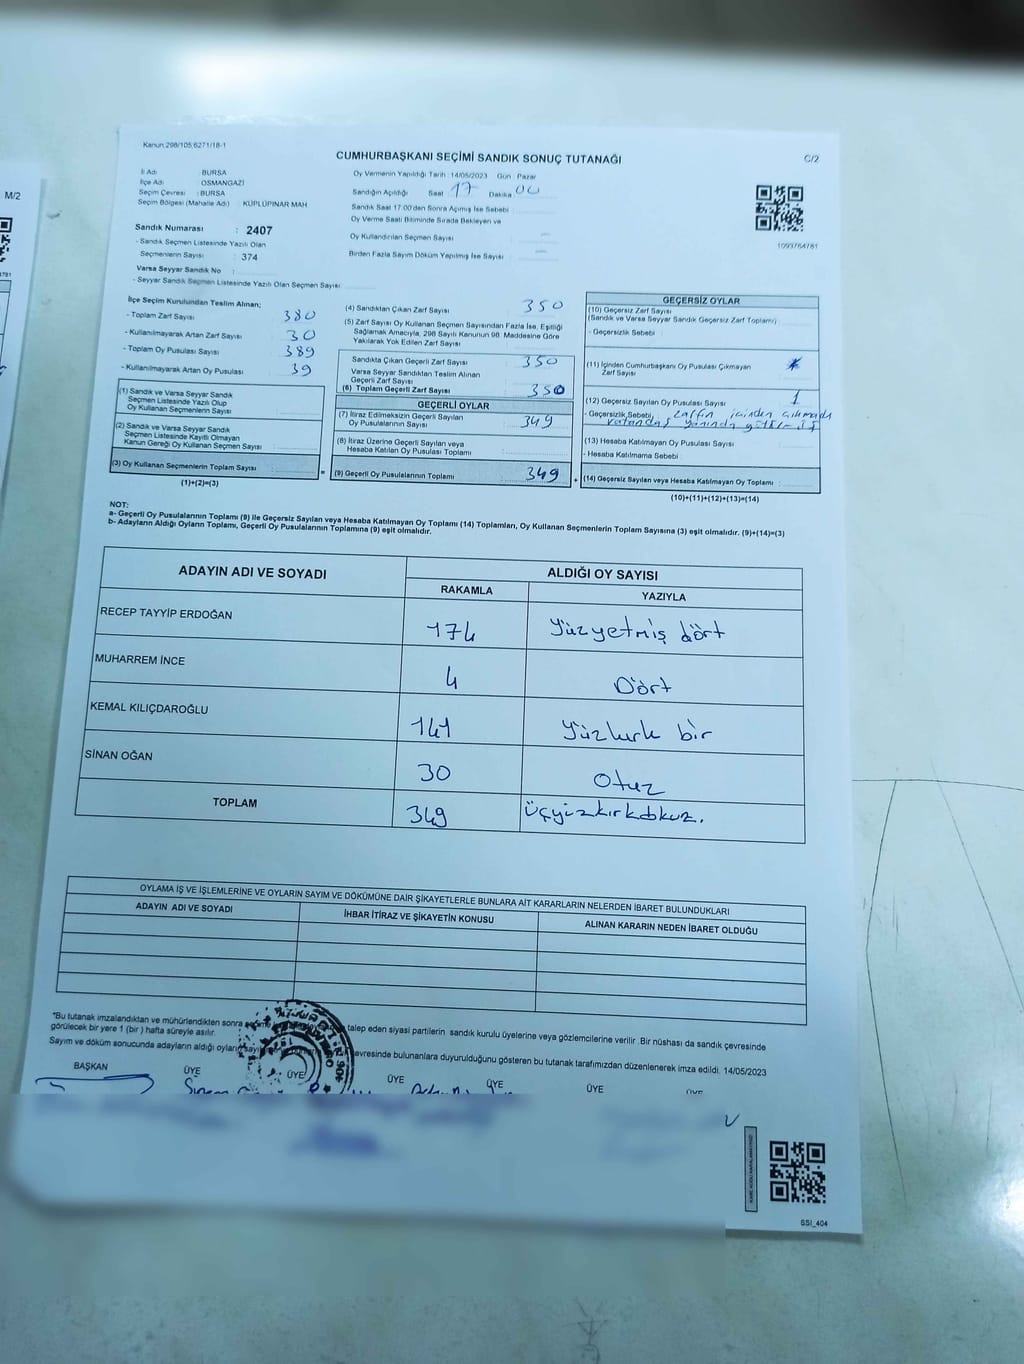 Kanun:298/105;6271/18-1
CUMHURBAŞKANI SEÇİMİ SANDIK SONUÇ TUTANAĞI
C/2
M/2
İl Adı : BURSA
İlçe Adı : OSMANGAZİ
Seçim Çevresi : BURSA
Seçim Bölgesi (Mahalle Adı) : KÜPLÜPINAR MAH
Oy Vermenin Yapıldığı Tarih : 14/05/2023 Gün : Pazar
Sandığın Açıldığı Saat 17 Dakika 00
Sandık Saat 17:00'dan Sonra Açılmış İse Sebebi
Oy Verme Saati Bitiminde Sırada Bekleyen ve
Oy Kullandırılan Seçmen Sayısı –
Birden Fazla Sayım Döküm Yapılmış İse Sayısı –
1093764781
Sandık Numarası : 2407
- Sandık Seçmen Listesinde Yazılı Olan
Seçmenlerin Sayısı : 374
Varsa Seyyar Sandık No :
- Seyyar Sandık Seçmen Listesinde Yazılı Olan Seçmen Sayısı
İlçe Seçim Kurulundan Teslim Alınan;
- Toplam Zarf Sayısı 380
- Kullanılmayarak Artan Zarf Sayısı 30
- Toplam Oy Pusulası Sayısı 389
- Kullanılmayarak Artan Oy Pusulası 39
(1) Sandık ve Varsa Seyyar Sandık
Seçmen Listesinde Yazılı Olup
Oy Kullanan Seçmenlerin Sayısı
(2) Sandık ve Varsa Seyyar Sandık
Seçmen Listesinde Kayıtlı Olmayan
Kanun Gereği Oy Kullanan Seçmen Sayısı
(3) Oy Kullanan Seçmenlerin Toplam Sayısı
(1)+(2)=(3)
(4) Sandıktan Çıkan Zarf Sayısı 350
(5) Zarf Sayısı Oy Kullanan Seçmen Sayısından Fazla İse, Eşitliği
Sağlamak Amacıyla, 298 Sayılı Kanunun 98. Maddesine Göre
Yakılarak Yok Edilen Zarf Sayısı
Sandıkta Çıkan Geçerli Zarf Sayısı 350
Varsa Seyyar Sandıktan Teslim Alınan
Geçerli Zarf Sayısı
(6) Toplam Geçerli Zarf Sayısı 350
GEÇERLİ OYLAR
(7) İtiraz Edilmeksizin Geçerli Sayılan
Oy Pusulalarının Sayısı 349
(8) İtiraz Üzerine Geçerli Sayılan veya
Hesaba Katılan Oy Pusulası Toplamı
= (9) Geçerli Oy Pusulalarının Toplamı 349 +
GEÇERSİZ OYLAR
(10) Geçersiz Zarf Sayısı
(Sandık ve Varsa Seyyar Sandık Geçersiz Zarf Toplamı)
- Geçersizlik Sebebi
(11) İçinden Cumhurbaşkanı Oy Pusulası Çıkmayan
Zarf Sayısı
(12) Geçersiz Sayılan Oy Pusulası Sayısı 1
- Geçersizlik Sebebi zarfın içinden çıkmadı
vatandaş yanında
(13) Hesaba Katılmayan Oy Pusulası Sayısı
- Hesaba Katılmama Sebebi
(14) Geçersiz Sayılan veya Hesaba Katılmayan Oy Toplamı
(10)+(11)+(12)+(13)=(14)
NOT:
a- Geçerli Oy Pusulalarının Toplamı (9) ile Geçersiz Sayılan veya Hesaba Katılmayan Oy Toplamı (14) Toplamları, Oy Kullanan Seçmenlerin Toplam Sayısına (3) eşit olmalıdır. (9)+(14)=(3)
b- Adayların Aldığı Oyların Toplamı, Geçerli Oy Pusulalarının Toplamına (9) eşit olmalıdır.
ADAYIN ADI VE SOYADI
ALDIĞI OY SAYISI
RAKAMLA YAZIYLA
RECEP TAYYİP ERDOĞAN 174 yüzyetmiş dört
MUHARREM İNCE 4 Dört
KEMAL KILIÇDAROĞLU 141 yüzkırk bir
SİNAN OĞAN 30 Otuz
TOPLAM 349 üçyüzkırkdokuz.
OYLAMA İŞ VE İŞLEMLERİNE VE OYLARIN SAYIM VE DÖKÜMÜNE DAİR ŞİKAYETLERLE BUNLARA AİT KARARLARIN NELERDEN İBARET BULUNDUKLARI
ADAYIN ADI VE SOYADI İHBAR İTİRAZ VE ŞİKAYETİN KONUSU ALINAN KARARIN NEDEN İBARET OLDUĞU
*Bu tutanak imzalandıktan ve mühürlendikten sonra talep eden siyasi partilerin sandık kurulu üyelerine veya gözlemcilerine verilir. Bir nüshası da sandık çevresinde
görülecek bir yere 1 (bir) hafta süreyle asılır.
Sayım ve döküm sonucunda adayların aldığı oyların çevresinde bulunanlara duyurulduğunu gösteren bu tutanak tarafımızdan düzenlenerek imza edildi. 14/05/2023
BAŞKAN ÜYE ÜYE ÜYE ÜYE ÜYE ÜYE
SSI_404